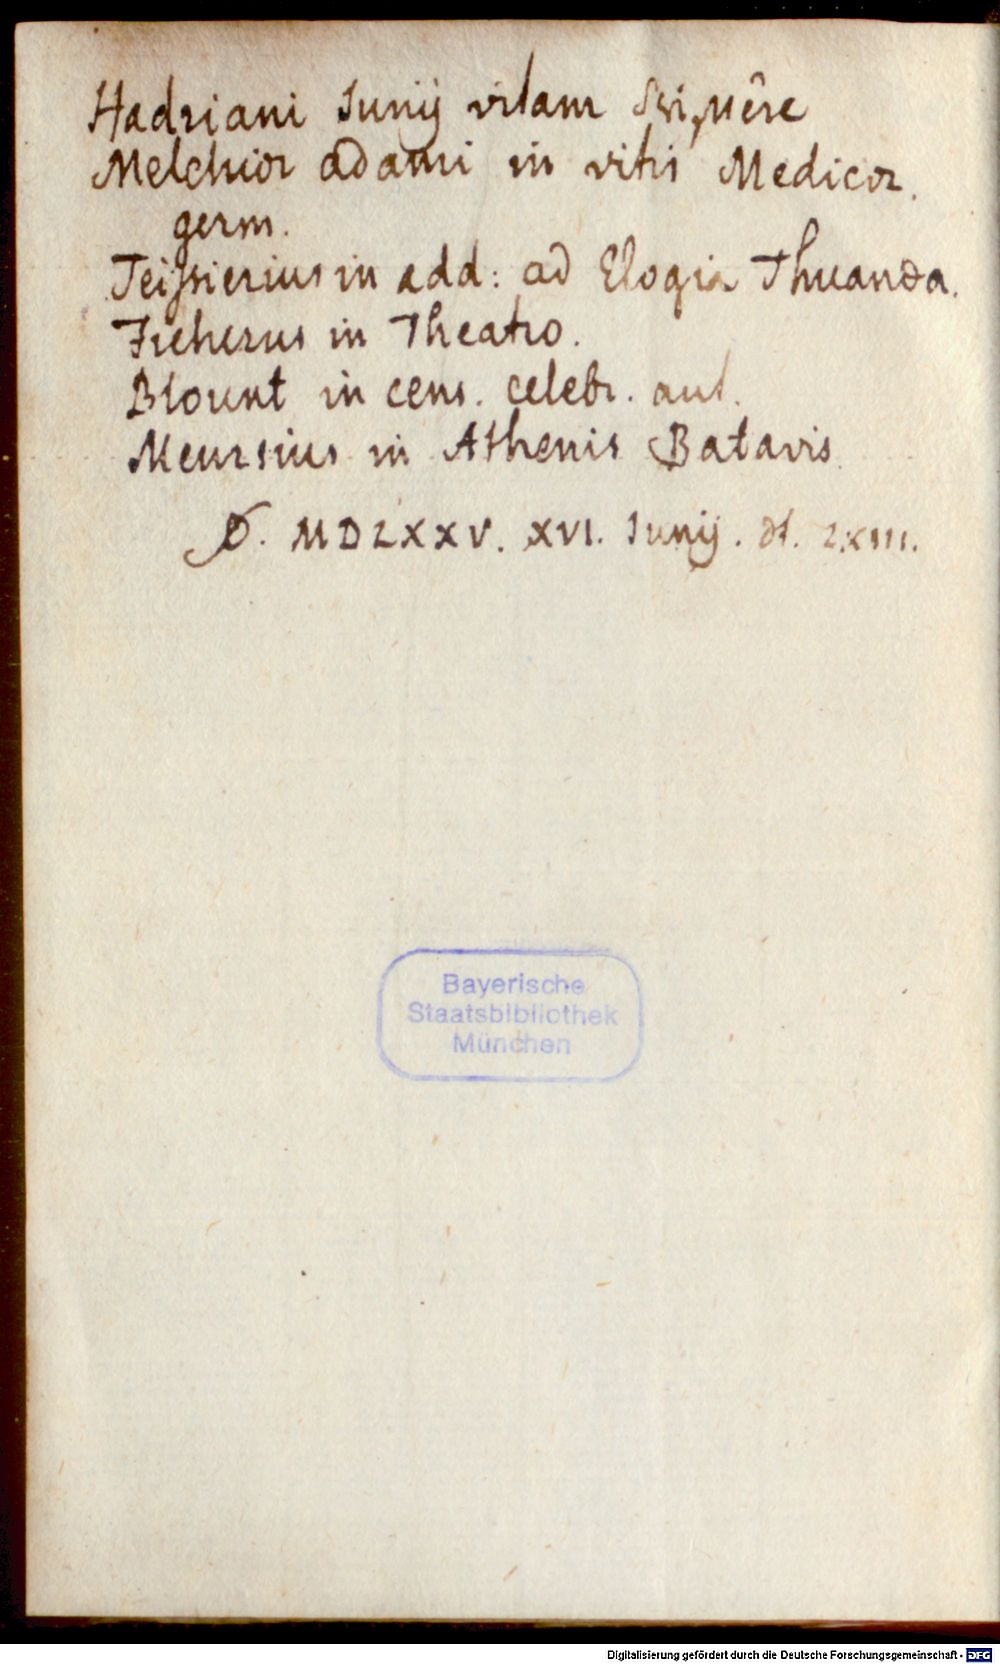 Hadriani Junij vitam scripsêre
Melchior adami in vitis Medicor.
germ.
Teissierius in add: ad Elogia Thuanea.
Freherus in Theatro.
Blount in cens. celebr. aut.
Meursius in Athenis Batavis.
MDLXXV. XVI. Junij. LXIII.
Bayerische
Staatsbibliothek
München
Digitalisierung gefördert durch die Deutsche Forschungsgemeinschaft - DFG